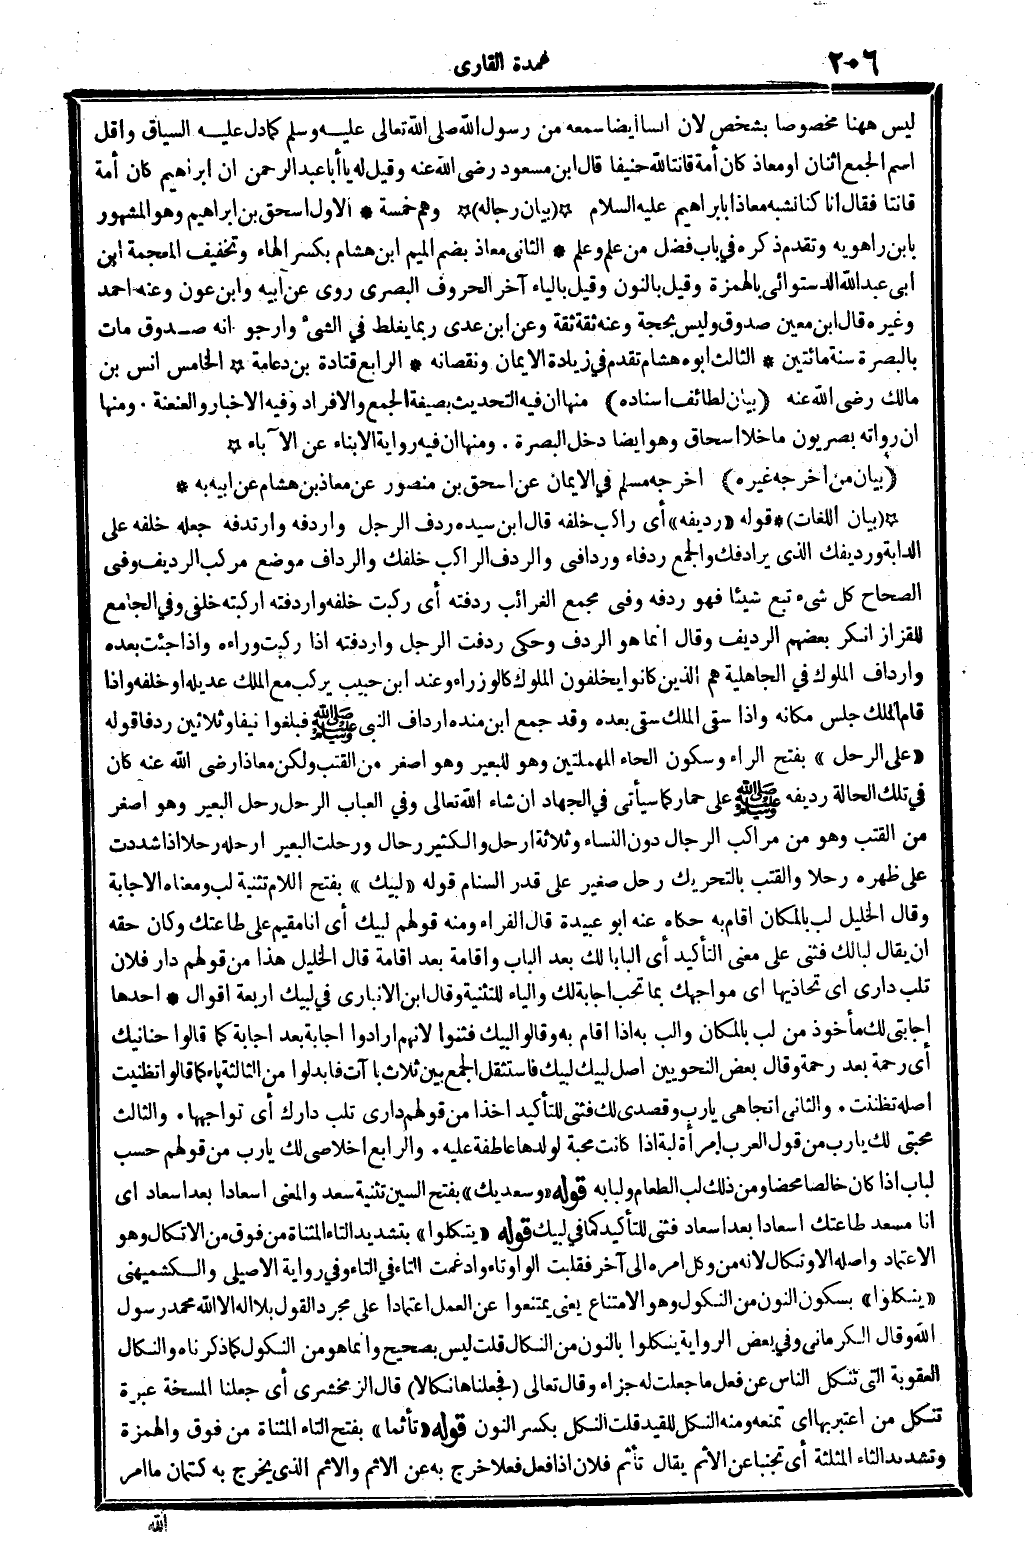 ٢٠٦
عمدة القارى
ليس ههنا مخصوصا بشخص لان انسا ايضا سمعه من رسول الله صلى الله تعالى عليه وسلم كما دل عليه السياق واقل
اسم الجمع اثنان او معاذ كان أمة قانتا لله حنيفا قال ابن مسعود رضى الله عنه وقيل له يا أبا عبد الرحمن ان ابراهيم كان أمة
قانتا فقال انا كنا نشبه معاذا بابراهيم عليه السلام ☆ (بيان رجاله) ☆ وهم خمسة * الاول اسحق بن ابراهيم وهو المشهور
بابن راهويه وتقدم ذكره في باب فضل من علم وعلم * الثانى معاذ بضم الميم ابن هشام بكسر الهاء وتخفيف المعجمة ابن
ابى عبد الله الدستوائى بالهمزة وقيل بالنون وقيل بالياء آخر الحروف البصرى روى عن أبيه وابن عون وعنه احمد
وغيره قال ابن معين صدوق وليس بحجة وعنه ثقة ثقة وعن ابن عدى ربما يغلط في الشئ وارجو انه صدوق مات
بالبصرة سنة مائتين * الثالث ابوه هشام تقدم في زيادة الايمان ونقصانه * الرابع قتادة بن دعامة ☆ الخامس انس بن
مالك رضى الله عنه (بيان لطائف اسناده) منها ان فيه التحديث بصيغة الجمع والافراد وفيه الاخبار والعنعنة . ومنها
ان رواته بصريون ما خلا اسحاق وهو ايضا دخل البصرة . ومنها ان فيه رواية الابناء عن الآباء ☆
(بيان من اخرجه غيره) اخرجه مسلم في الايمان عن اسحق بن منصور عن معاذ بن هشام عن ابيه به *
☆ (بيان اللغات) * قوله «رديفه» أى راكب خلفه قال ابن سيده ردف الرجل واردفه وارتدفه جعله خلفه على
الدابة ورديفك الذى يرادفك والجمع ردفاء وردافى والردف الراكب خلفك والرداف موضع مركب الرديف وفى
الصحاح كل شىء تبع شيئا فهو ردفه وفى مجمع الغرائب ردفته أى ركبت خلفه واردفته اركبته خلفى وفي الجامع
للقزاز انكر بعضهم الرديف وقال انما هو الردف وحكى ردفت الرجل واردفته اذا ركبت وراءه واذا جئت بعده
وارداف الملوك في الجاهلية هم الذين كانوا يخلفون الملوك كالوزراء وعند ابن حبيب يركب مع الملك عديله او خلفه واذا
قام الملك جلس مكانه واذا سقى الملك سقى بعده وقد جمع ابن منده ارداف النبى ﷺ فبلغوا نيفا وثلاثين ردفا قوله
«على الرحل» بفتح الراء وسكون الحاء المهملتين وهو للبعير وهو اصغر من القتب ولكن معاذا رضى الله عنه كان
في تلك الحالة رديفه ﷺ على حمار كما سيأتى في الجهاد ان شاء الله تعالى وفي العباب الرحل رحل البعير وهو اصغر
من القتب وهو من مراكب الرجال دون النساء وثلاثة ارحل والكثير رحال ورحلت البعير ارحله رحلا اذا شددت
على ظهره رحلا والقتب بالتحريك رحل صغير على قدر السنام قوله «لبيك» بفتح اللام تثنية لب ومعناه الاجابة
وقال الخليل لب بالمكان اقام به حكاه عنه ابو عبيدة قال الفراء ومنه قولهم لبيك أى انا مقيم على طاعتك وكان حقه
ان يقال لبا لك فثنى على معنى التأكيد أى البابا لك بعد الباب واقامة بعد اقامة قال الخليل هذا من قولهم دار فلان
تلب دارى اى تحاذيها اى مواجهك بما تحب اجابة لك والياء للتثنية وقال ابن الانبارى في لبيك اربعة اقوال * احدها
اجابتى لك مأخوذ من لب بالمكان والب به اذا اقام به وقالوا لبيك فثنوا لانهم ارادوا اجابة بعد اجابة كما قالوا حنانيك
أى رحمة بعد رحمة وقال بعض النحويين اصل لبيك لببك فاستثقل الجمع بين ثلاث باآت فابدلوا من الثالثة ياء كما قالوا تظنيت
اصله تظننت . والثانى اتجاهى يارب وقصدى لك فثنى للتأكيد اخذا من قولهم دارى تلب دارك أى تواجهها . والثالث
محبتى لك يارب من قول العرب امرأة لبة اذا كانت محبة لولدها عاطفة عليه . والرابع اخلاصى لك يارب من قولهم حسب
لباب اذا كان خالصا محضا ومن ذلك لب الطعام ولبابه قوله «وسعديك» بفتح السين تثنية سعد والمعنى اسعادا بعد اسعاد اى
انا مسعد طاعتك اسعادا بعد اسعاد فثنى للتأكيد كما في لبيك قوله «يتكلوا» بتشديد التاء المثناة من فوق من الاتكال وهو
الاعتماد واصله الاوتكال لانه من وكل امره الى آخر فقلبت الواو تاء وادغمت التاء في التاء وفي رواية الاصيلى والكشميهنى
«ينكلوا» بسكون النون من النكول وهو الامتناع يعنى يمتنعوا عن العمل اعتمادا على مجرد القول بلا اله الا الله محمد رسول
الله وقال الكرمانى وفي بعض الرواية ينكلوا بالنون من النكال قلت ليس بصحيح وانما هو من النكول كما ذكرناه والنكال
العقوبة التى تنكل الناس عن فعل ما جعلت له جزاء وقال تعالى (فجعلناها نكالا) قال الزمخشرى أى جعلنا المسخة عبرة
تنكل من اعتبر بها اى تمنعه ومنه النكل للقيد قلت النكل بكسر النون قوله «تأثما» بفتح التاء المثناة من فوق والهمزة
وتشديد الثاء المثلثة أى تجنبا عن الأثم يقال تأثم فلان اذا فعل فعلا خرج به عن الاثم والاثم الذى يخرج به كتمان ما امر
الله